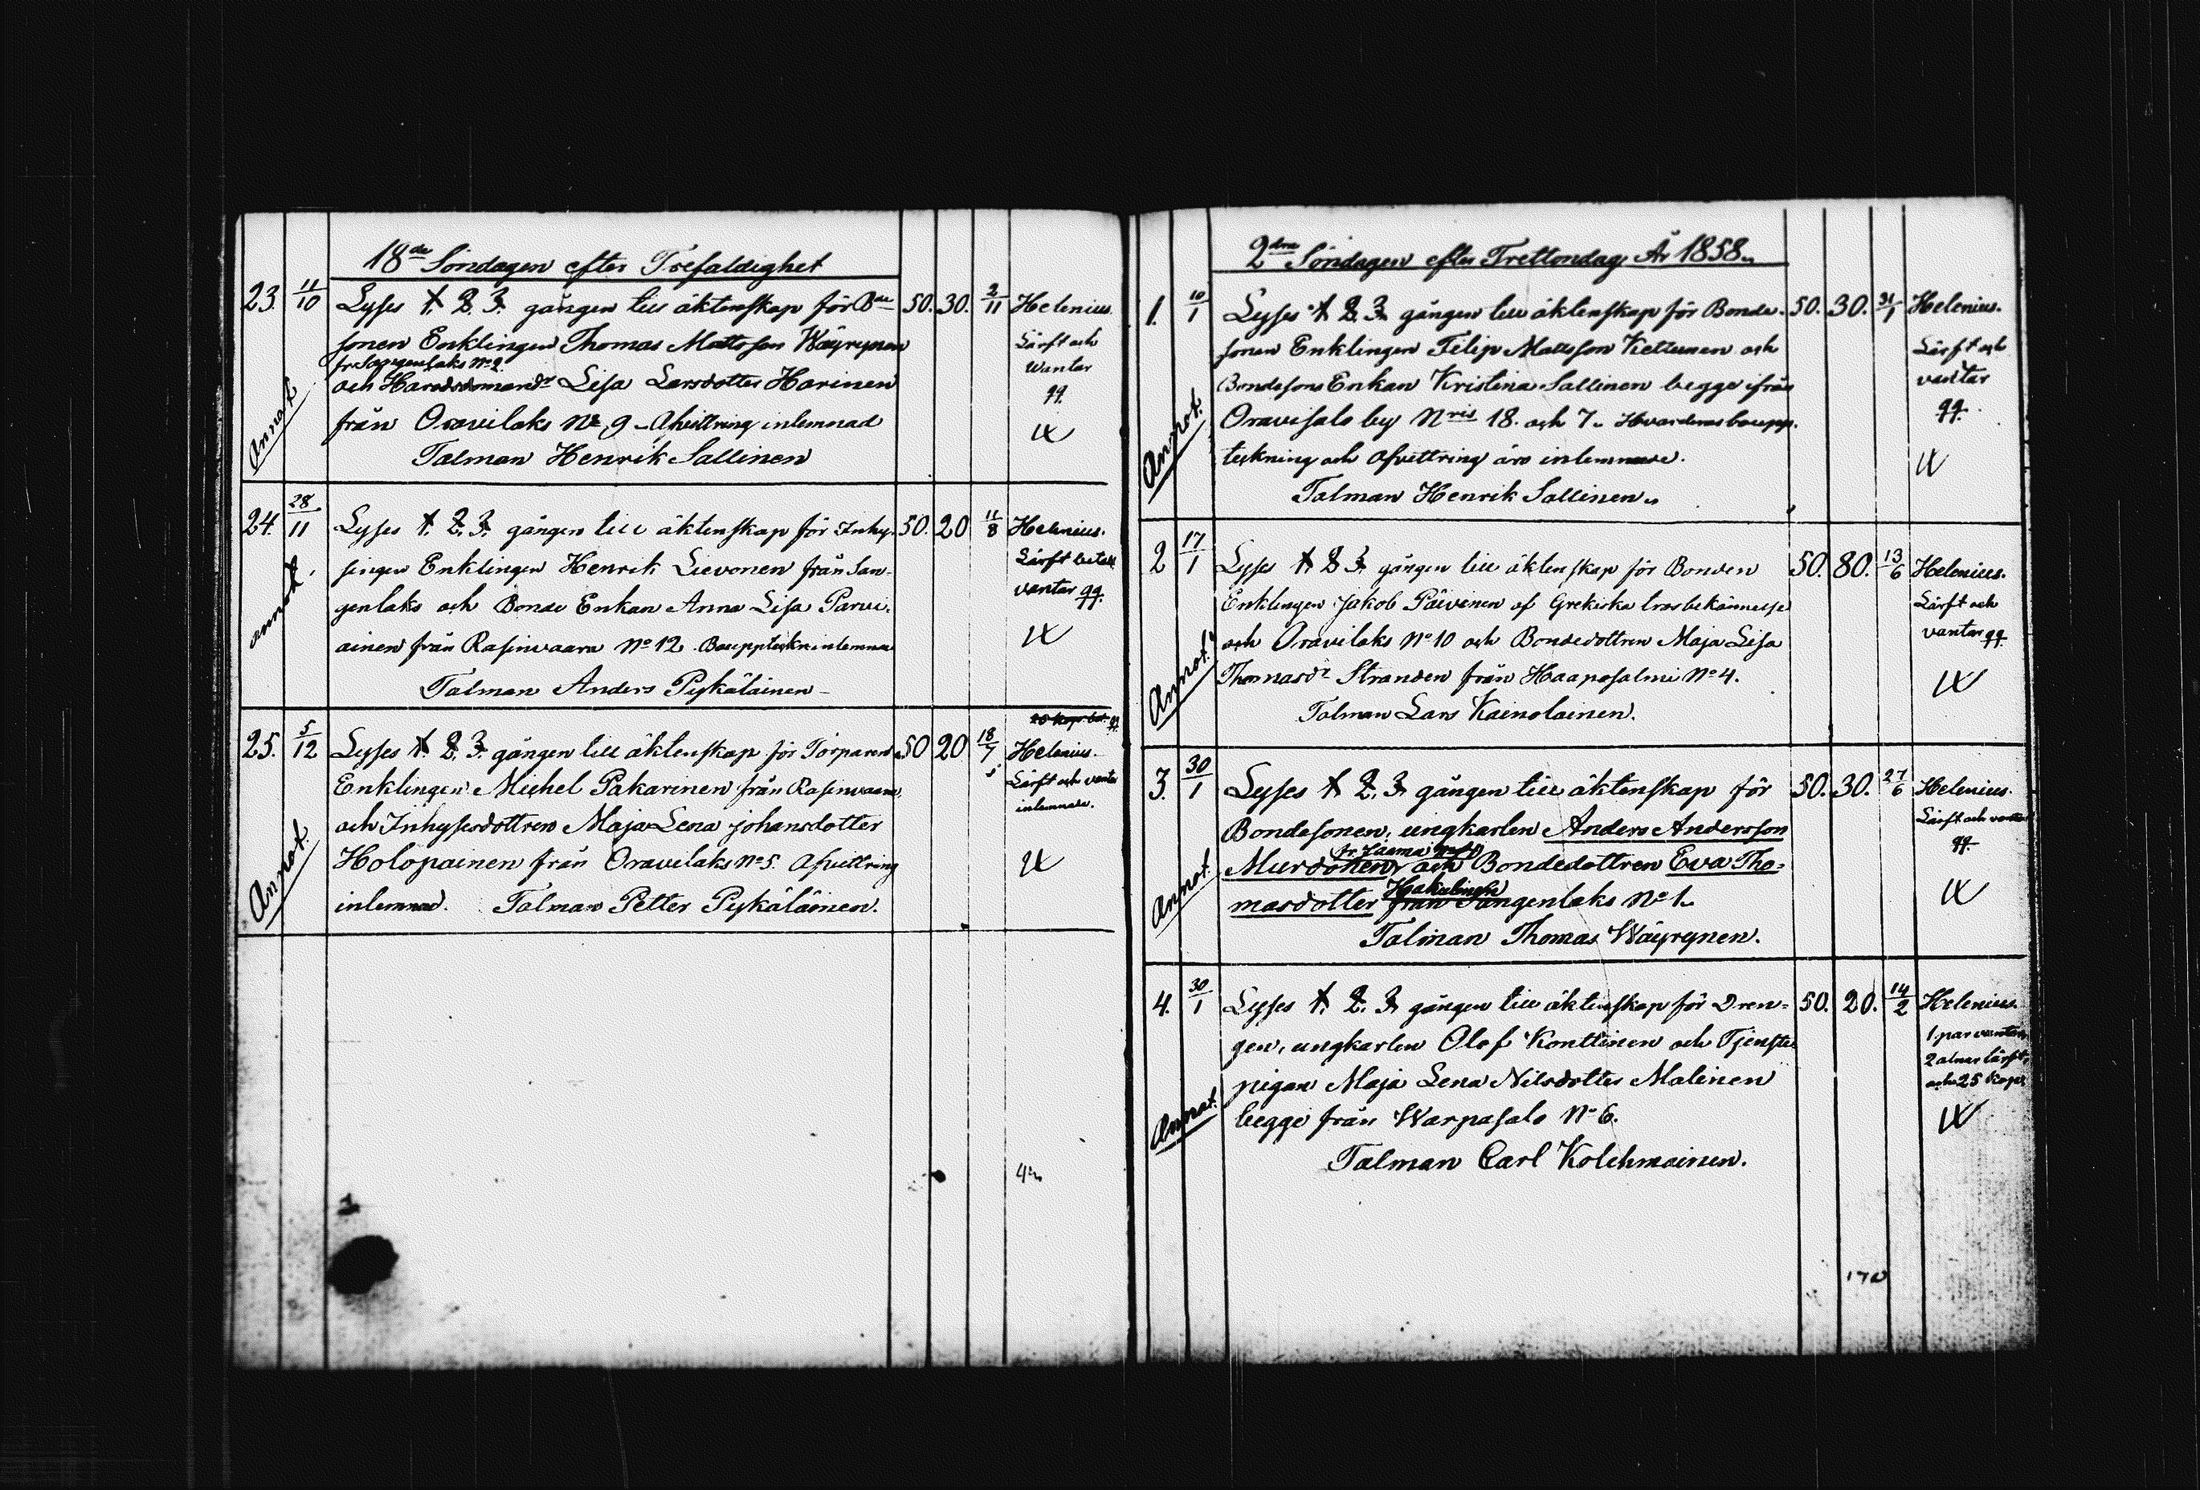 18de Söndagen efter Trefaldighet
23. 11/10 Lyses 1. 2. 3. gången till äktenskap för Bde 50. 30. 2/11 Helenius
sonen Enklingen Thomas Mattsson Wäyrynen Lärft och
fr Sangenlaks No 2 Wantar
Annot. och Haradsdomaredr Lisa Larsdotter Harinen qq.
från Oravilaks No 9 - Afvittring inlemnad
Talman Henrik Sallinen
24. 28/11 Lyses 1. 2. 3. gången till äktenskap för Inhy- 50. 20 11/8 Helenius.
singen Enklingen Henrik Lievonen från San- Lärft betalt
annot. genlaks och Bonde Enkan Anna Lisa Parvi- vantar qq.
ainen från Rasinvaara No 12. Bouppteckn inlemnad
Talman Anders Pykäläinen
25. 5/12 Lyses 1. 2. 3. gången till äktenskap för Torparen 50 20 18/7 Helenius.
Enklingen Michel Pakarinen från Rasinvaara Lärft och vantar
och Inhysesdottren Maja Lena Johansdotter inlemnade.
Annot. Holopainen från Oravilaks No 5. Afvittring
inlemnad. Talman Petter Pykäläinen.
2dra Söndagen efter Trettondag År 1858.
1. 10/1 Lyses 1. 2. 3. gången till äktenskap för Bonde- 50. 30. 31/1 Helenius.
sonen Enklingen Filip Mattsson Kettunen och Lärft och
Bondesons Enkan Kristina Sallinen begge ifrån vantar
Annot. Oravisalo by Nris 18. och 7. Hvarderas boupp- qq.
teckning och Afvittring äro inlemnade.
Talman Henrik Sallinen.
2 17/1 Lyses 1. 2. 3. gången till äktenskap för Bonden 50. 80. 13/6 Helenius.
Enklingen Jakob Päivinen af Grekiska trosbekännelse Lärft och
Annot. och Oravilaks No 10 och Bondedottren Maja Lisa vantar qq.
Thomasdr Stranden från Haapasalmi No 4.
Talman Lars Kainolainen.
3. 30/1 Lyses 1. 2. 3. gången till äktenskap för 50. 30. 27/6 Helenius.
Bondesonen, ungkarlen Anders Andersson Lärft och vantar
Annot. Mursonen och Bondedottren Eva Tho- qq.
Hakulinen
masdotter från Sangenlaks No 1.
Talman Thomas Wäyrynen.
4. 30/1 Lyses 1. 2. 3. gången till äktenskap för Dren- 50. 20. 14/2 Helenius.
gen, ungkarlen Olof Konttinen och Tjenste 1 par vantar,
Annot. pigan Maja Lena Nilsdotter Malinen 2 alnar lärft,
begge från Warpasalo No 6. och 25 kop.
Talman Carl Kolehmainen.
170